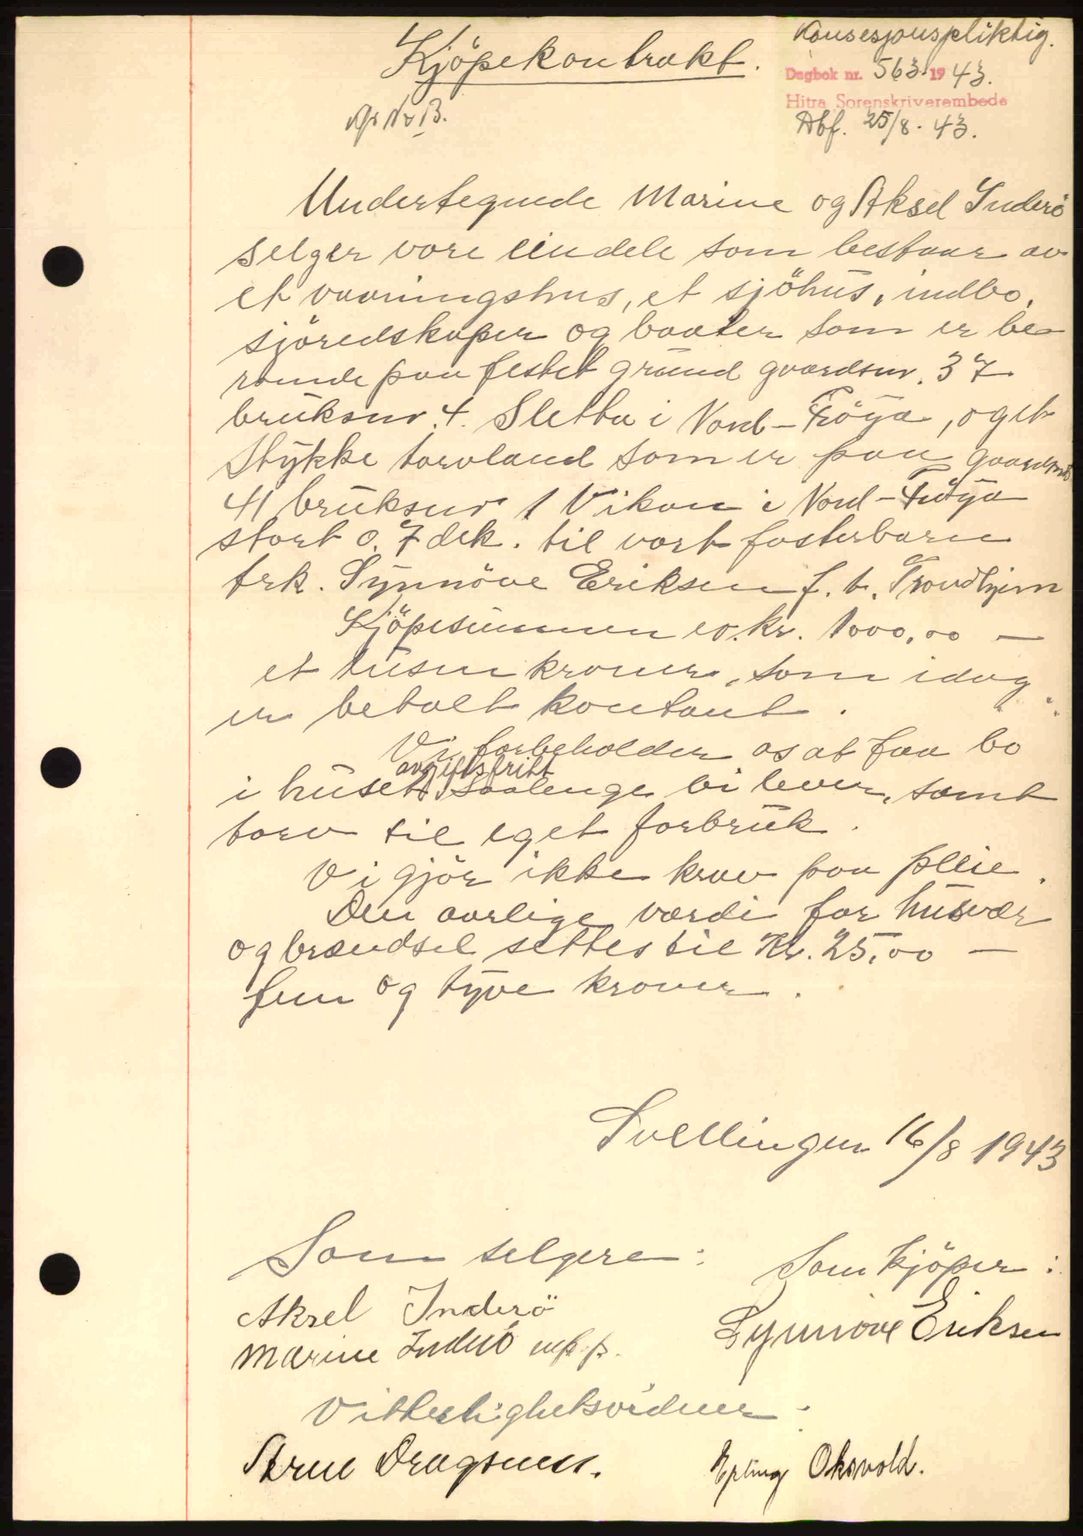 Kjöpekontrakt.
Konsesjonspliktig.
Dagbok nr. 563 1943.
Hitra Sorenskriverembede
Abf. 25/8. 43.
Undertegnede Marine og Aksel Inderö
selger vore eindele som bestaar av
et vaaningshus, et sjöhus, indbo,
sjöredskaper og baater som er be-
roende paa festet grund gaardsnr. 37
bruksnr. 4. Sletta i Nord-Fröya, og et
stykke torvland som er paa gaardsnr
41 bruksnr 1 Vikan i Nord-Fröya
stort 0.7 dek. til vort fosterbarn
frk. Synnöve Eriksen f. i. Trondhjem
Kjöpesummen er kr. 1000,00 —
et tusen kroner, som idag
er betalt kontant.
Vi forbeholder os at faa bo
avgiftsfritt
i huset saalenge vi lever, samt
torv til eget forbruk.
Vi gjör ikke krav paa pleie.
Den aarlige værdi for husvær
og brændsel settes til Kr. 25,00 —
fem og tyve kroner.
Svellingen 16/8 1943
Som selgere: Som kjöper:
Aksel Inderö
Synnöve Eriksen
Marine Inderö m.p.p.
Vitterlighetsvidner
Arne Dragsnes. Erling Oksvold.